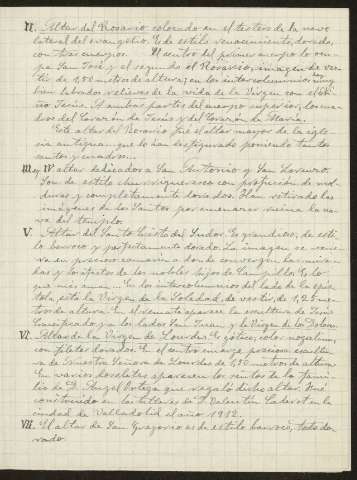 II. Altar del Rosario colocado en el testero de la nave
lateral del evangelio. Es de estilo renacimiento, dorado,
con tres cuerpos. El centro del primer cuerpo lo ocu-
pa San José y el segundo el Rosario, imagen de ves-
tir de 1,50 metros de altura; en los intercolumnios hay muy
bien labrados relieves de la vida de la Virgen con el
Niño Jesús. A ambas partes del cuerpo superior, los cua-
dros del Corazón de Jesús y del Corazón de María.
Este altar del Rosario fué el altar mayor de la igle-
sia antigua que lo han desfigurado poniendo tantos
santos y cuadros.
III y IV altar dedicados a San Antonio y San Lorenzo.
Son de estilo churrigueresco con profusión de mol-
duras y completamente dorados. Han retirado las
imágenes de los Santos por amenazar ruina la na-
ve del templo.
V. Altar del Santo Cristo del Sudor. Es grandioso, de esti-
lo barroco y perfectamente dorado. La imagen se vene-
ra en precioso camarín a donde convergen las mira-
das y los afectos de los nobles hijos de Sampillo. Es lo
que más aman. En los intercolumnios del lado de la epís-
tola, está la Virgen de la Soledad, de vestir, de 1,25 me-
tros de altura. En el remate aparece la escultura de Jesús
Crucificado y a los lados San Juan y la Virgen de los Dolores.
VI. Altar de la Virgen de Lourdes. Es gótico, color nogalina,
con filetes dorados. En el centro emerge preciosa escultu-
ra de Nuestra Señora de Lourdes de 1,50 metros de altura.
En varios doseletes aparecen los santos de la fami-
lia de D. Angel Ortega que regaló dicho altar. Fué
construido en los talleres de D. Valentín en la
ciudad de Valladolid el año 1912.
VII. El altar de San Gregorio es de estilo barroco, todo do-
rado.